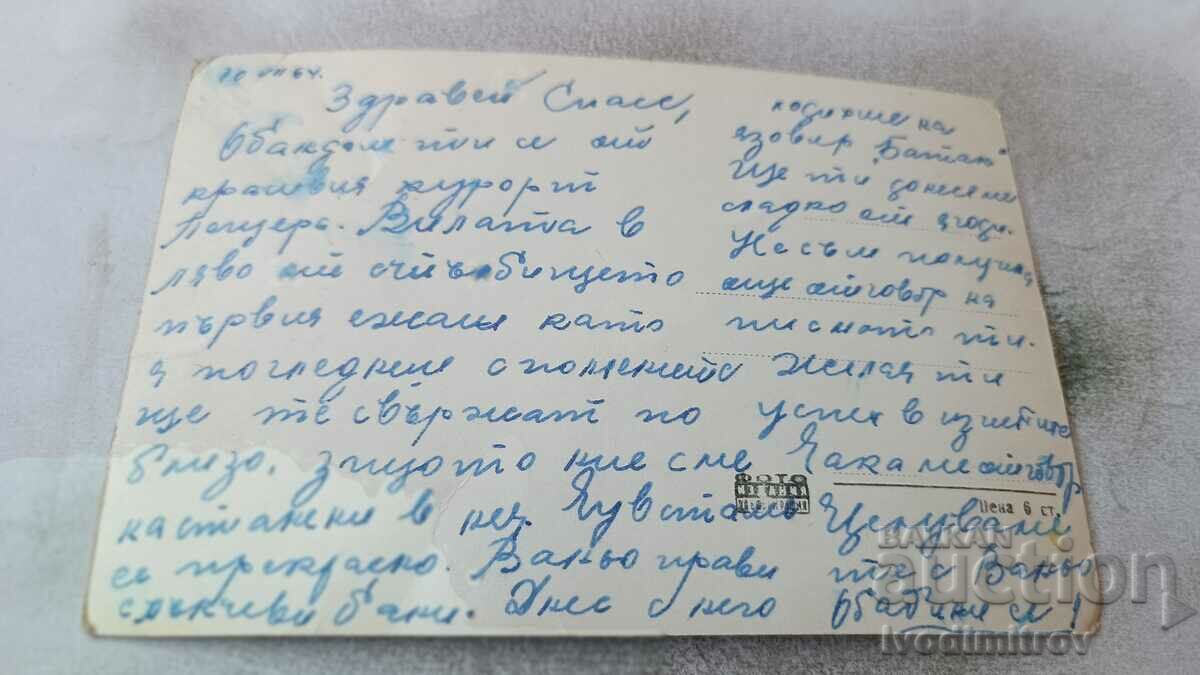 20 VII 64.
Здравей Спасе,
Обаждам ти се от
красивия курорт
Пещера. Вилата в
ляво от
първия екран като
я погледнеш спомените
ще те свържат по
близо, защото ние сме
настанени в нея. Чувстваме
се прекрасно. Ваньо прави
слънчеви бани. Днес с него
ходихме на
язовир "Батак"
Ще ти донесем
сладко от ягоди.
Не съм получил
още отговор на
писмото ти.
Желая ти
успех в изпитите
Чакаме отговор
Целуваме
те с Ваньо
Обади се!
ФОТО
Цена 6 ст.
BALKAN
auction
Ivodimitrov